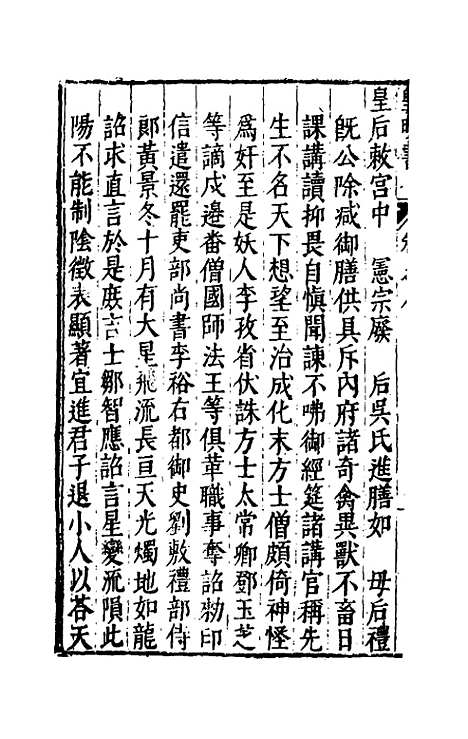 皇后敕宮中　憲宗廢　后吳氏進膳如　母后禮
旣公除減御膳供具斥內府諸奇禽異獸不畜日
課講讀抑畏自慎聞諫不咈御經筵諸講官稱先
生不名天下想望至治成化末方士僧頗倚神怪
爲奸至是妖人李孜省伏誅方士太常卿鄧玉芝
等謫戍邊畨僧國師法王等俱革職事奪詔勑印
信遣還罷吏部尚書李裕右都御史劉敷禮部侍
郎黃景冬十月有大星飛流長亘天光燭地如龍
詔求直言於是庻吉士鄒智應詔言星變流隕此
陽不能制陰徵表顯著宜進君子退小人以荅天